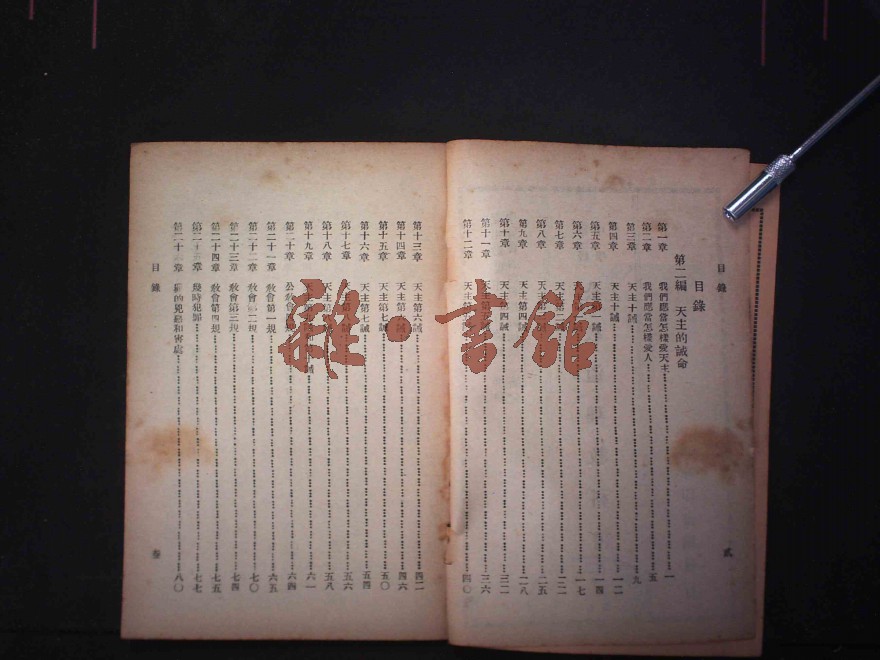 目錄
目錄
第二編 天主的誡命
第一章 我們應當怎樣愛天主 一
第二章 我們應當怎樣愛人 五
第三章 天主十誡 九
第四章 天主十誡 一二
第五章 天主 誡 一四
第六章 天主 一七
第七章 天主第 二二
第八章 天主 二五
第九章 天主第四誡 二八
第十章 天主第四誡 三二
第十一章 天主第五 三六
第十二章 天主 四〇
貳
第十三章 天主第六誡 四二
第十四章 天主第 誡 四六
第十五章 天主第七誡 五〇
第十六章 天主第七誡 五四
第十七章 天主第 誡 五六
第十八章 天主第 五八
第十九章 天主 誡 六一
第二十章 公教會 規 六四
第二十一章 教會第一規 六五
第二十二章 教會 二規 七〇
第二十三章 教會第三規 七四
第二十四章 教會第四規 七五
第二十五章 幾時犯罪 七七
第二十 章 罪的兇惡和害處 八〇
目錄
叁
雜·書館